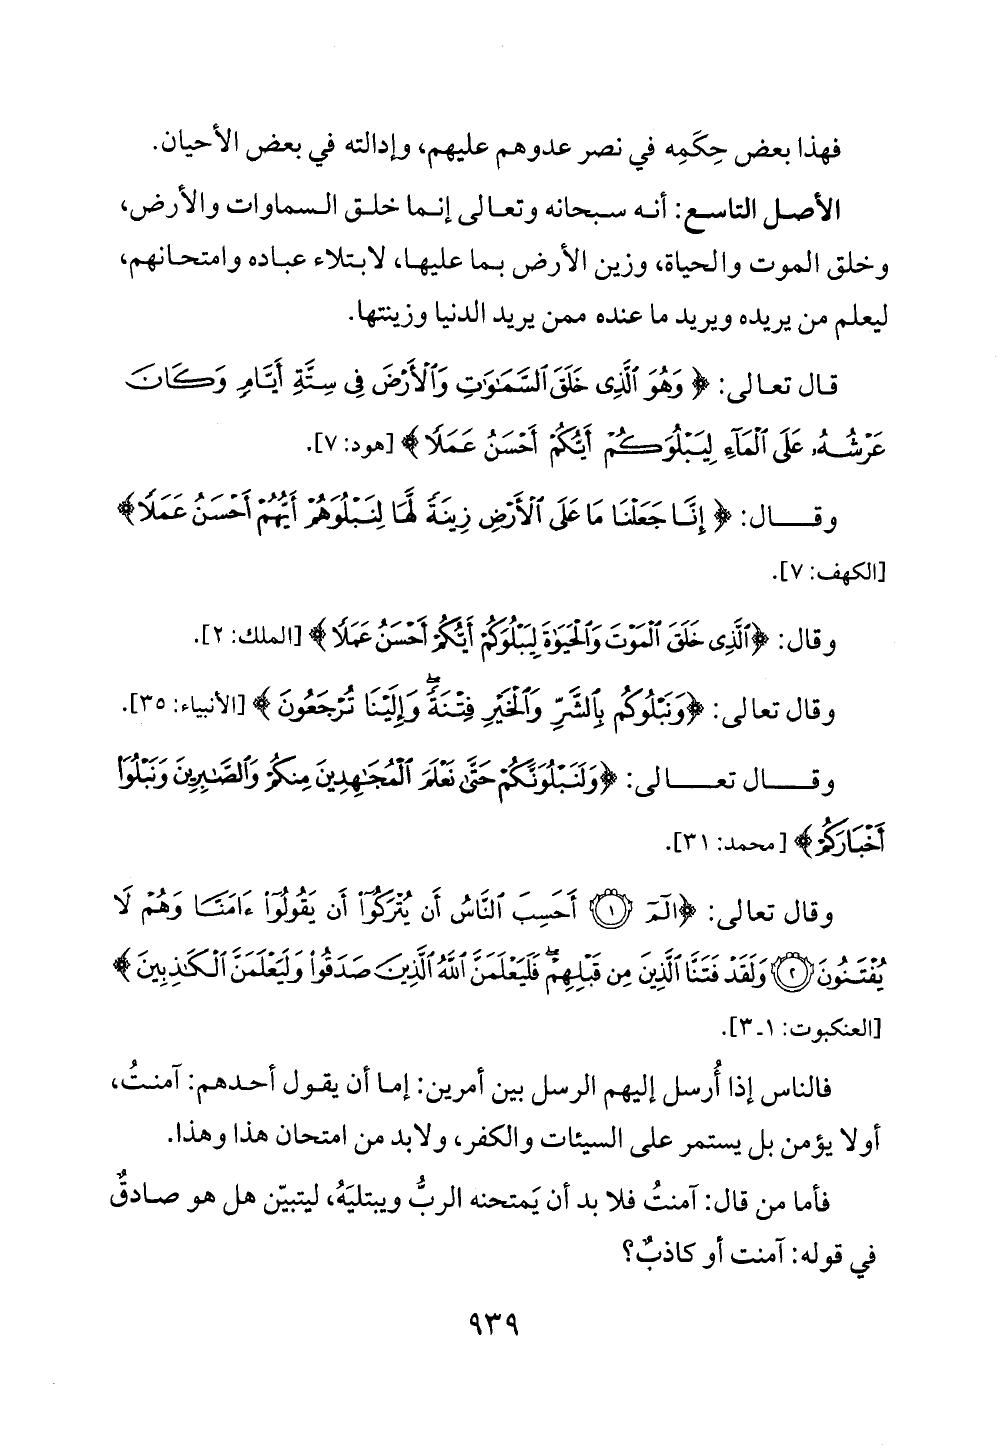 فهذا بعض حِكَمِه في نصر عدوهم عليهم، وإدالته في بعض الأحيان.
الأصل التاسع: أنه سبحانه وتعالى إنما خلق السماوات والأرض،
وخلق الموت والحياة، وزين الأرض بما عليها، لابتلاء عباده وامتحانهم،
ليعلم من يريده ويريد ما عنده ممن يريد الدنيا وزينتها.
قال تعالى: ﴿وَهُوَ ٱلَّذِى خَلَقَ ٱلسَّمَٰوَٰتِ وَٱلْأَرْضَ فِى سِتَّةِ أَيَّامٍ وَكَانَ
عَرْشُهُۥ عَلَى ٱلْمَآءِ لِيَبْلُوَكُمْ أَيُّكُمْ أَحْسَنُ عَمَلًا﴾ [هود: ٧].
وقال: ﴿إِنَّا جَعَلْنَا مَا عَلَى ٱلْأَرْضِ زِينَةً لَّهَا لِنَبْلُوَهُمْ أَيُّهُمْ أَحْسَنُ عَمَلًا﴾
[الكهف: ٧].
وقال: ﴿ٱلَّذِى خَلَقَ ٱلْمَوْتَ وَٱلْحَيَوٰةَ لِيَبْلُوَكُمْ أَيُّكُمْ أَحْسَنُ عَمَلًا﴾ [الملك: ٢].
وقال تعالى: ﴿وَنَبْلُوكُم بِٱلشَّرِّ وَٱلْخَيْرِ فِتْنَةً ۖ وَإِلَيْنَا تُرْجَعُونَ﴾ [الأنبياء: ٣٥].
وقال تعالى: ﴿وَلَنَبْلُوَنَّكُمْ حَتَّىٰ نَعْلَمَ ٱلْمُجَٰهِدِينَ مِنكُمْ وَٱلصَّٰبِرِينَ وَنَبْلُوَا۟
أَخْبَارَكُمْ﴾ [محمد: ٣١].
وقال تعالى: ﴿الٓمٓ ١ أَحَسِبَ ٱلنَّاسُ أَن يُتْرَكُوٓا۟ أَن يَقُولُوٓا۟ ءَامَنَّا وَهُمْ لَا
يُفْتَنُونَ ٢ وَلَقَدْ فَتَنَّا ٱلَّذِينَ مِن قَبْلِهِمْ ۖ فَلَيَعْلَمَنَّ ٱللَّهُ ٱلَّذِينَ صَدَقُوا۟ وَلَيَعْلَمَنَّ ٱلْكَٰذِبِينَ﴾
[العنكبوت: ١ـ٣].
فالناس إذا أُرسل إليهم الرسل بين أمرين: إما أن يقول أحدهم: آمنتُ،
أولا يؤمن بل يستمر على السيئات والكفر، ولابد من امتحان هذا وهذا.
فأما من قال: آمنتُ فلا بد أن يَمتحنه الربُّ ويبتليَهُ، ليتبيّن هل هو صادقٌ
في قوله: آمنت أو كاذبٌ؟
٩٣٩